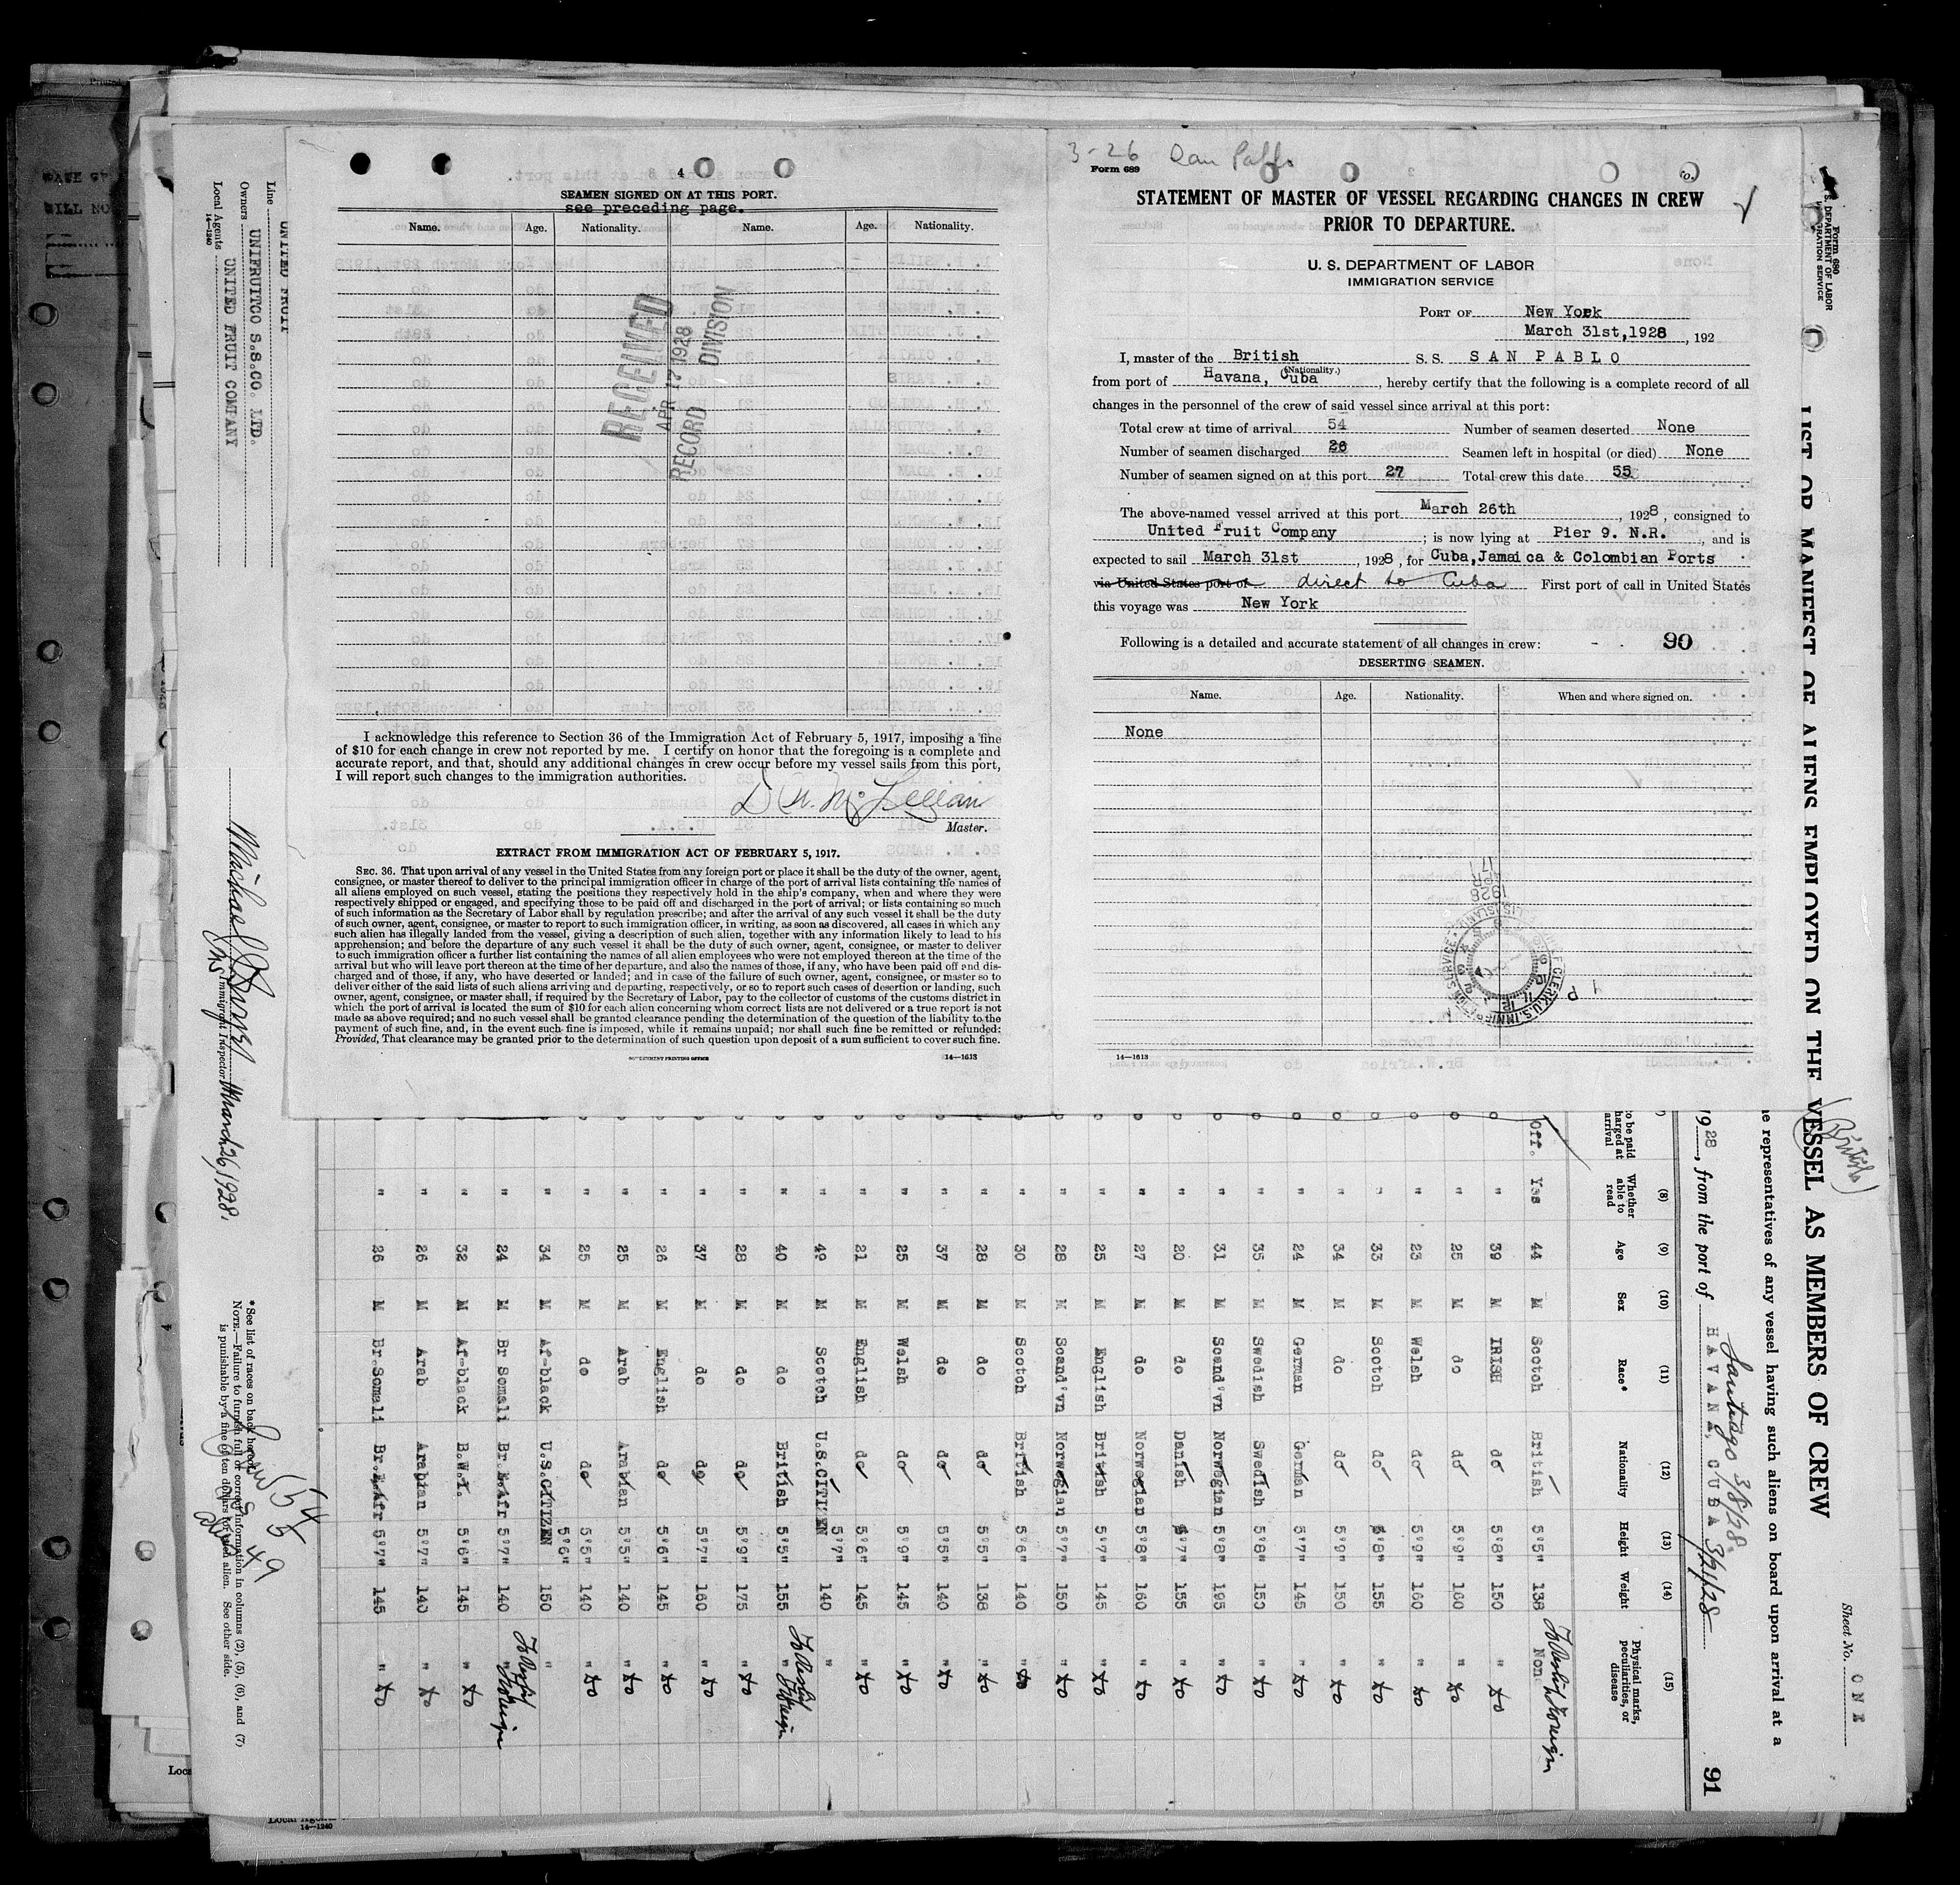 3-26
Form 689
STATEMENT OF MASTER OF VESSEL REGARDING CHANGES IN CREW
PRIOR TO DEPARTURE.
U. S. DEPARTMENT OF LABOR
IMMIGRATION SERVICE
PORT OF New York
March 31st,1928, 192
I, master of the British S. S. SAN PABLO
(Nationality.)
from port of Havana, Cuba, hereby certify that the following is a complete record of all
changes in the personnel of the crew of said vessel since arrival at this port:
Total crew at time of arrival 54 Number of seamen deserted None
Number of seamen discharged 26 Seamen left in hospital (or died) None
Number of seamen signed on at this port 27 Total crew this date 55
The above-named vessel arrived at this port March 26th, 1928, consigned to
United Fruit Company; is now lying at Pier 9. N.R., and is
expected to sail March 31st, 1928, for Cuba,Jamaica & Colombian Ports
via United States port of direct to Cuba First port of call in United States
this voyage was New York
Following is a detailed and accurate statement of all changes in crew: 90
DESERTING SEAMEN.
Name. Age. Nationality. When and where signed on.
None
14—1613
4
SEAMEN SIGNED ON AT THIS PORT.
see preceding page.
Name. Age. Nationality. Name. Age. Nationality.
RECEIVED
APR 17 1928
RECORD DIVISION
I acknowledge this reference to Section 36 of the Immigration Act of February 5, 1917, imposing a fine
of $10 for each change in crew not reported by me. I certify on honor that the foregoing is a complete and
accurate report, and that, should any additional changes in crew occur before my vessel sails from this port,
I will report such changes to the immigration authorities.
Master.
EXTRACT FROM IMMIGRATION ACT OF FEBRUARY 5, 1917.
SEC. 36. That upon arrival of any vessel in the United States from any foreign port or place it shall be the duty of the owner, agent,
consignee, or master thereof to deliver to the principal immigration officer in charge of the port of arrival lists containing the names of
all aliens employed on such vessel, stating the positions they respectively hold in the ship's company, when and where they were
respectively shipped or engaged, and specifying those to be paid off and discharged in the port of arrival; or lists containing so much
of such information as the Secretary of Labor shall by regulation prescribe; and after the arrival of any such vessel it shall be the duty
of such owner, agent, consignee, or master to report to such immigration officer, in writing, as soon as discovered, all cases in which any
such alien has illegally landed from the vessel, giving a description of such alien, together with any information likely to lead to his
apprehension; and before the departure of any such vessel it shall be the duty of such owner, agent, consignee, or master to deliver
to such immigration officer a further list containing the names of all alien employees who were not employed thereon at the time of the
arrival but who will leave port thereon at the time of her departure, and also the names of those, if any, who have been paid off and dis-
charged and of those, if any, who have deserted or landed; and in case of the failure of such owner, agent, consignee, or master so to
deliver either of the said lists of such aliens arriving and departing, respectively, or so to report such cases of desertion or landing, such
owner, agent, consignee, or master shall, if required by the Secretary of Labor, pay to the collector of customs of the customs district in
which the port of arrival is located the sum of $10 for each alien concerning whom correct lists are not delivered or a true report is not
made as above required; and no such vessel shall be granted clearance pending the determination of the question of the liability to the
payment of such fine, and, in the event such fine is imposed, while it remains unpaid; nor shall such fine be remitted or refunded:
Provided, That clearance may be granted prior to the determination of such question upon deposit of a sum sufficient to cover such fine.
GOVERNMENT PRINTING OFFICE 14—1613
Form 680
U. S. DEPARTMENT OF LABOR
IMMIGRATION SERVICE
Sheet No. ONE
LIST OR MANIFEST OF ALIENS EMPLOYED ON THE VESSEL AS MEMBERS OF CREW
(British)
representatives of any vessel having such aliens on board upon arrival at a
1928, from the port of HAVANA, CUBA 3/21/28
Santiago 3/8/28.
91
(8) (9) (10) (11) (12) (13) (14) (15)
to be paid
Whether able to read Age Sex Race* Nationality Height Weight Physical marks, peculiarities, or disease
Off. Yes 44 M Scotch British 5'5" 138 None
" 39 M IRISH do 5'8" 150 "
" 25 M do do 5'9" 160 "
" 23 M Welsh do 5'9" 160 "
" 33 M Scotch do 5'8" 155 "
" 34 M do do 5'9" 150 "
" 24 M German German 5'7" 145 "
" 35 M Swedish Swedish 5'8" 150 "
" 31 M Scand'vn Norwegian 5'8" 195 "
" 20 M do Danish 5'7" 155 "
" 27 M do Norwegian 5'8" 160 "
" 25 M English British 5'7" 145 "
" 28 M Scand'vn Norwegian 5'7" 150 "
" 30 M Scotch British 5'6" 140 "
" 28 M do do 5'5" 138 "
" 37 M do do 5'5" 140 "
" 25 M Welsh do 5'9" 145 "
" 21 M English do 5'6" 145 "
" 49 M Scotch U.S.CITIZEN 5'7" 140 "
" 40 M do British 5'5" 155 "
" 28 M do do 5'9" 175 "
" 37 M do do 5'7" 160 "
" 26 M English do 5'6" 145 "
" 25 M Arab Arabian 5'5" 140 "
" 25 M do do 5'5" 140 "
" 34 M Af-black U.S.CITIZEN 5'6" 150 "
" 24 M Br Somali Br.E.Afr 5'7" 140 "
" 32 M Af-black B.W.I. 5'6" 145 "
" 26 M Arab Arabian 5'7" 140 "
" 26 M Br.Somali Br.E.Afr 5'7" 145 "
Line UNITED FRUIT
Owners UNIFRUITCO S.S.CO. LTD.
Local Agents UNITED FRUIT COMPANY
14—1240
Immigrant Inspector March 26, 1928.
*See list of races on back hereof.
NOTE.—Failure to furnish full or correct information in columns (2), (5), (6), and (7)
is punishable by a fine of ten dollars for each alien. See other side.
54
5
49
14—1240